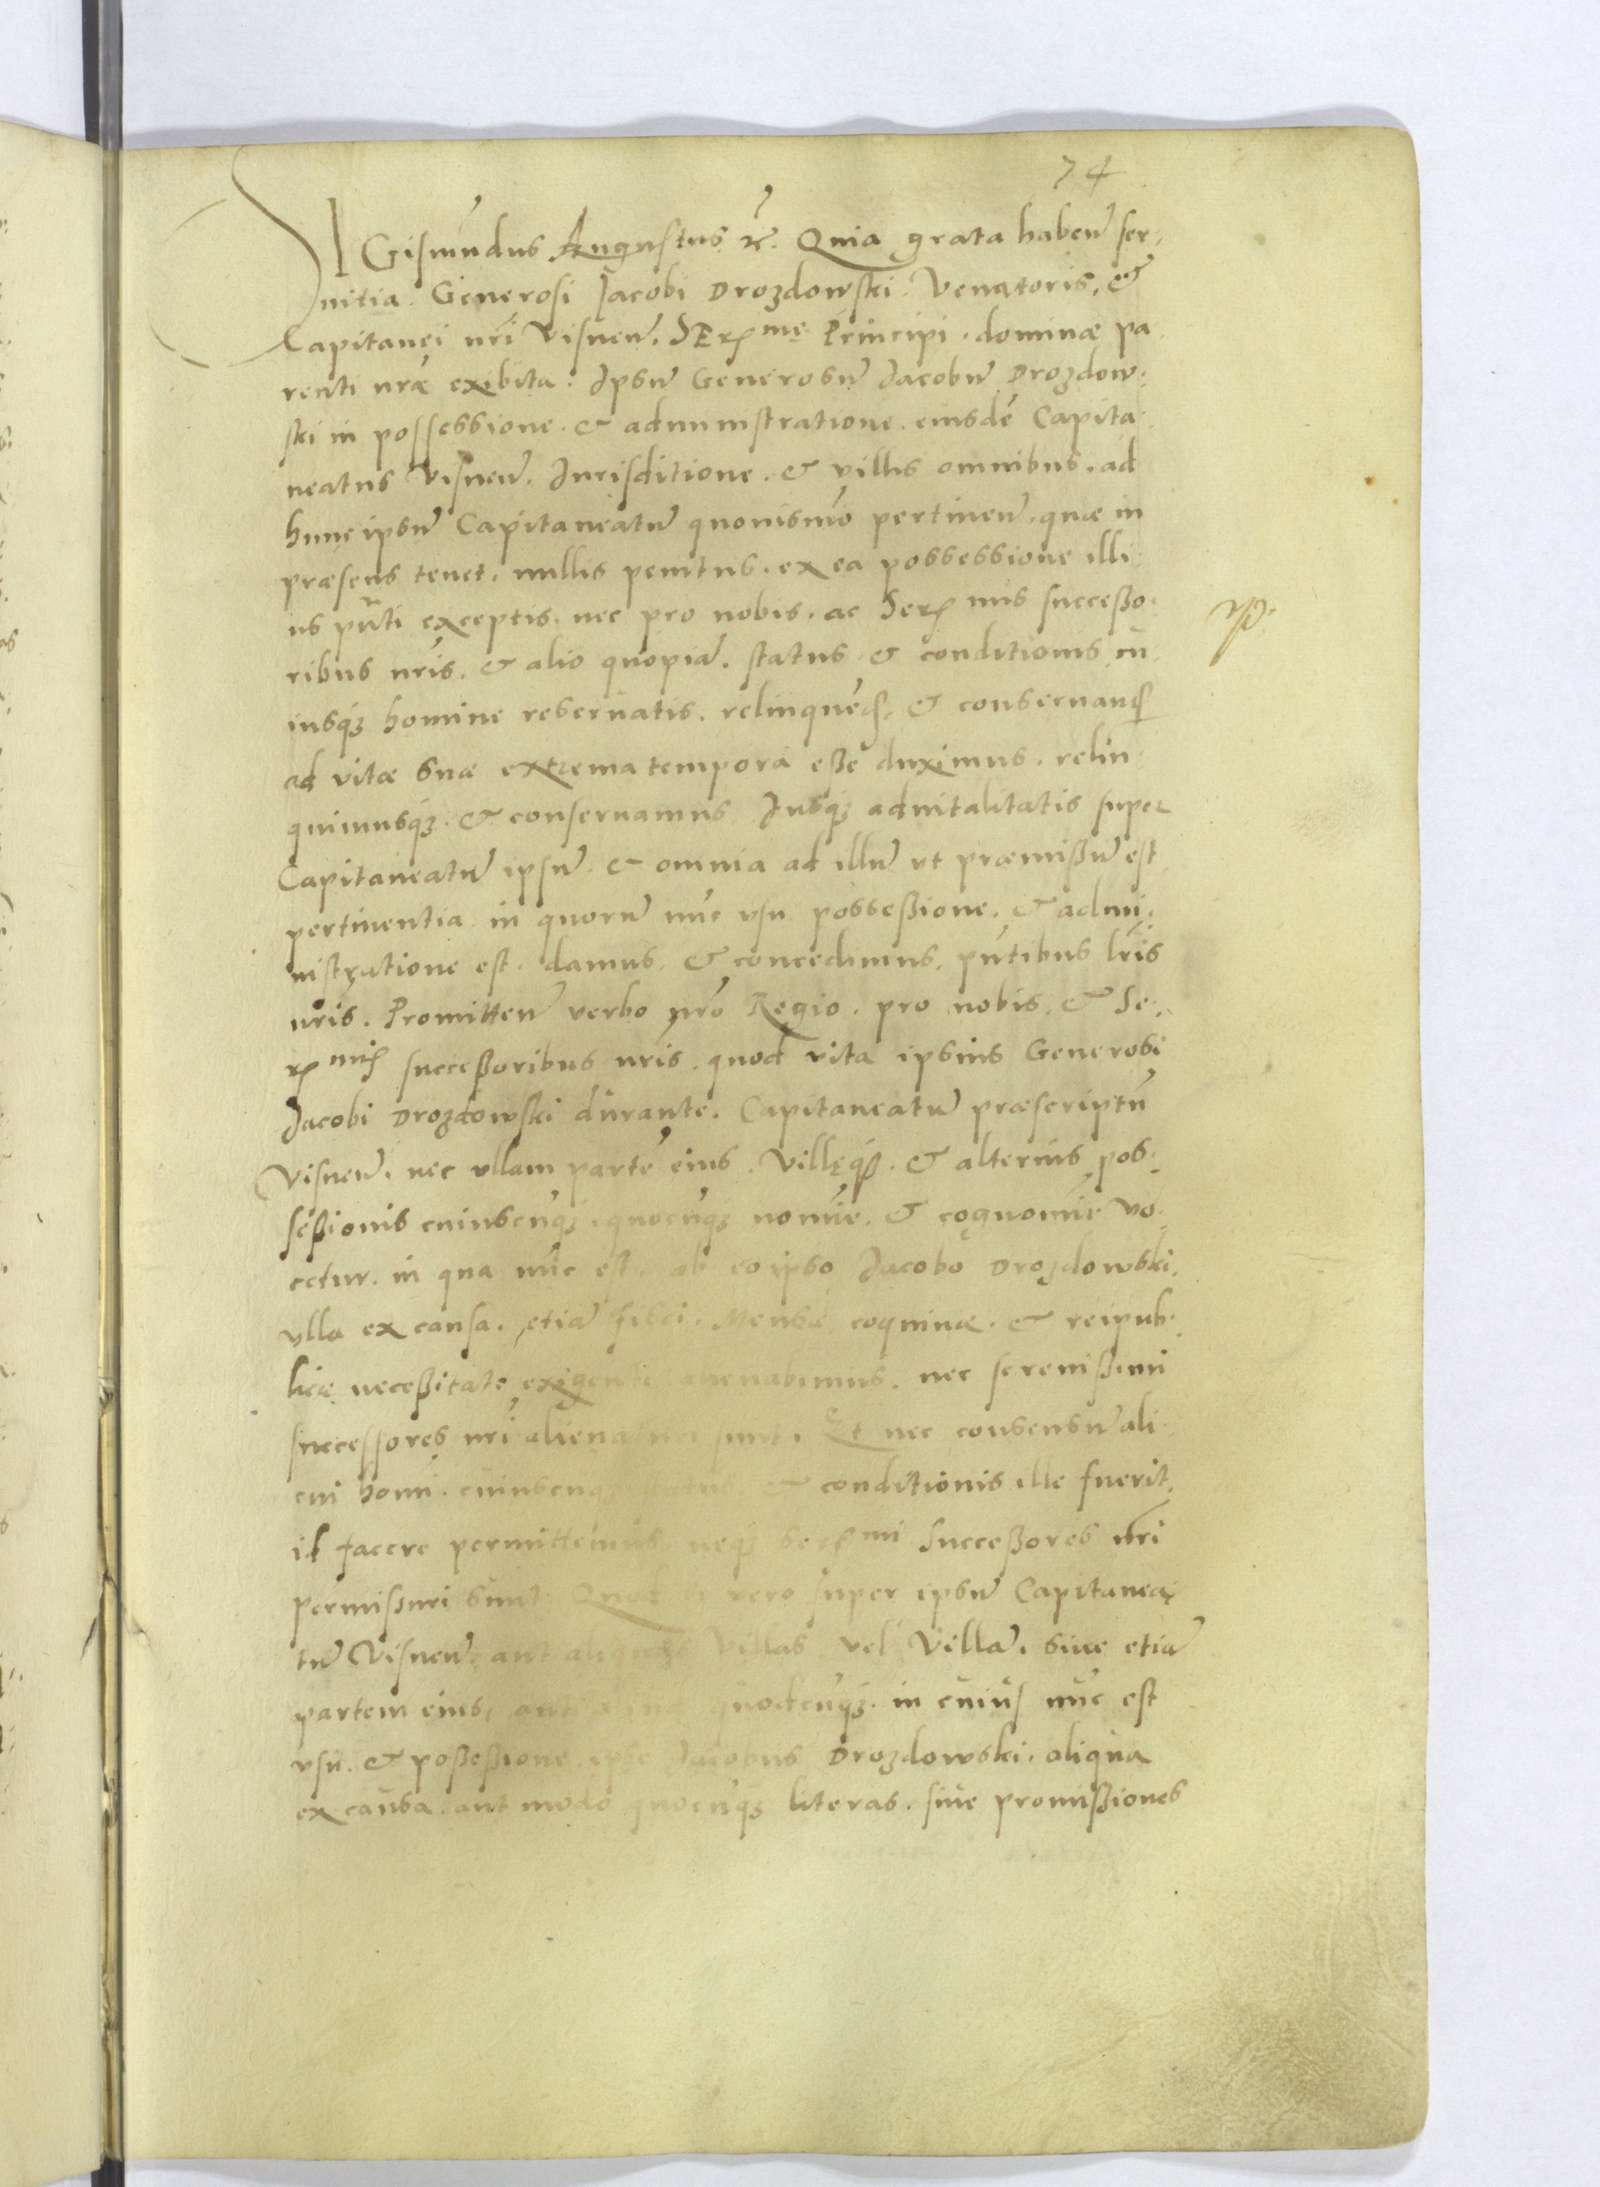 74
SIGismūdus Augustus rē. Quia grata habeñ ser,
uitia. Generosi Jacobi Drozdowski. Venatoris, &
Capitanei nr̃i Visneñ. SERmę Principi. dominæ pa
renti nr̃æ exibita. Ipsū Generosū Jacobū Drozdow.
ski in possessione. & administratione. eiusdē Capita
neatus Visneñ. Jurisditione. & villis omnibus. ad
hunc ipsū Capitaneatū quouismō pertineñ. quæ in
præsens tenet. nullis penitus. ex ea possessione illi
us pñti exceptis. nec pro nobis. ac Ser mis successo.
ribus nr̃is. & alio quopiā. status & conditionis cu
iusq3 homine reseruatis. relinquēd. & conseruand
ad vitæ suæ extrema tempora eße duximus. relin
quimusq3. & conseruamus Jusq3 aduitalitatis super
Capitaneatū ipsū. & omnia ad illū ut præmißū est
pertinentia in quorū nūc usu possessione. & admi,
nistratione est. damus. & concedimus. pñtibus lr̃is
nr̃is. Promitteñ verbo nr̃o Regio. pro nobis. & Se.
r mis successoribus nr̃is. quod vita ipsius Generosi
Jacobi Drozdowski durante. Capitaneatū præscriptū
Visneñ. nec ullam partē eius. Villęq3. & alterius pos.
sessionis cuiuscūq3. quocūq3 nomīe. & cognomīe vo.
cetur. in qua nūc est. ab eo ipso Jacobo Drozdowski.
ulla ex causa. etiā fisci. Mensæ coquinæ. & reipub.
licæ necessitate exigente alienabimus. nec serenissimi
successores nr̃i alienaturi sunt. Et nec consensū ali
cui homi. cuiuscūq3 status & conditionis ille fuerit.
id facere permittemus. neq3 Ser mi Successores nr̃i
permissuri sunt. Quod si vero super ipsū Capitanea
tū Visneñ. aut aliquas Villas vel Villā. siue etiā
partem eius, aut quodcūq3. in cuius nūc est
usu. & possessione. ipse Jacobus Drozdowski. aliqua
ex causa. aut modo quocūq3 literas. siue promissiones